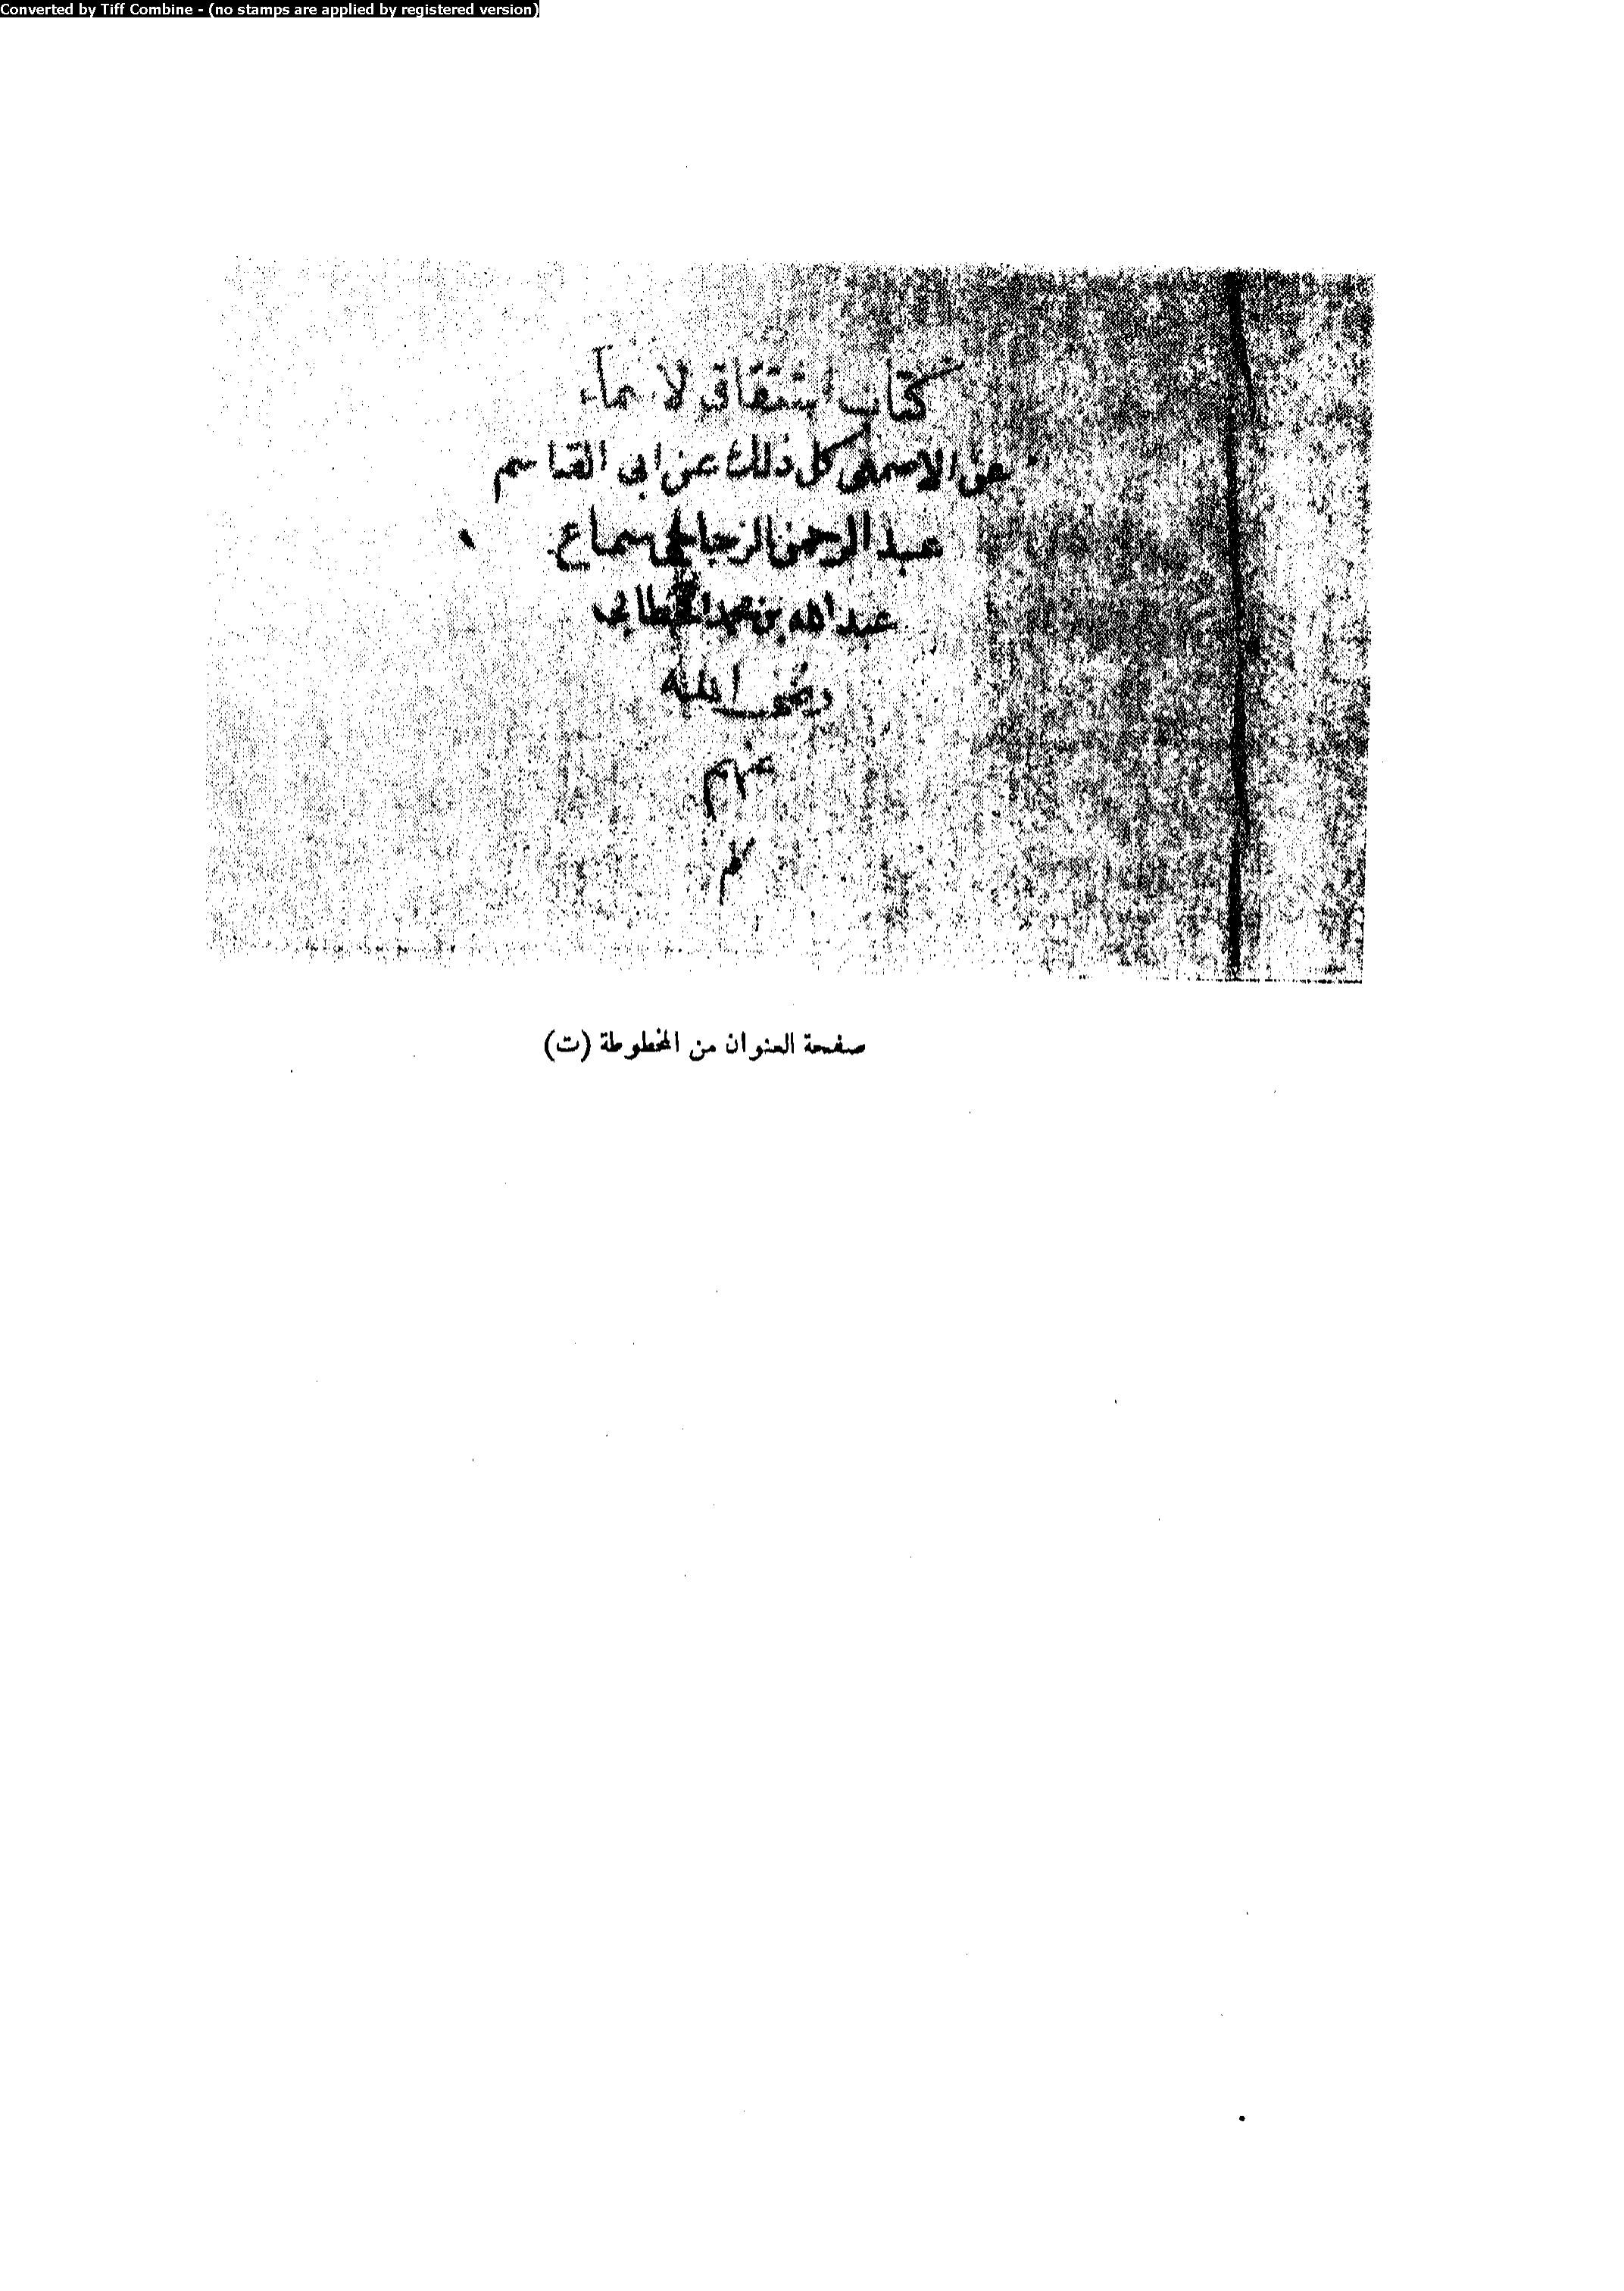 Converted by Tiff Combine - (no stamps are applied by registered version)
كتاب اشتقاق الاسماء
عن الاصمعى كل ذلك عن ابى القاسم
عبد الرحمن الزجاجى سماع
عبد الله بن محمد الخطابى
رضى الله
عنهم
كلهم
صفحة العنوان من المخطوطة (ت)